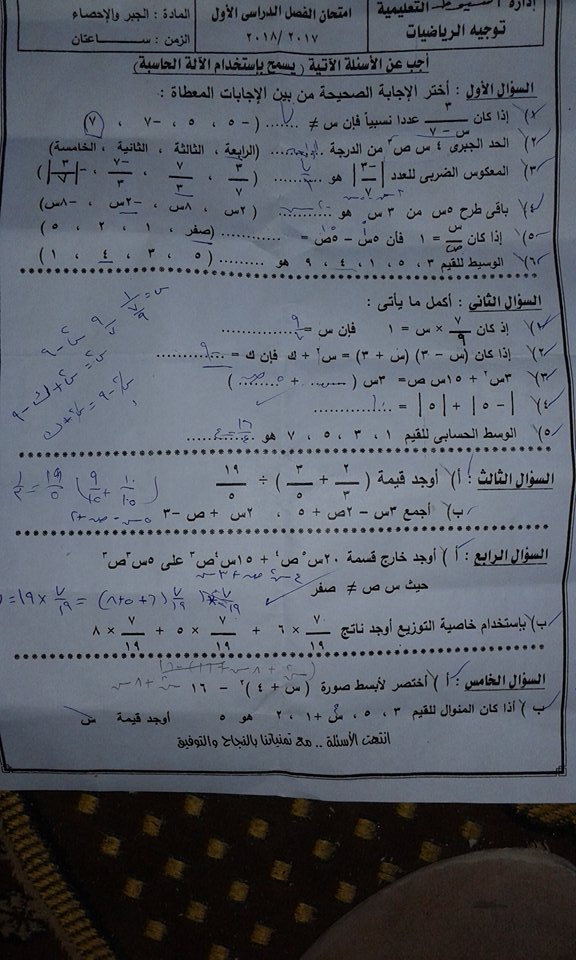 إدارة أسيوط التعليمية
توجيه الرياضيات
امتحان الفصل الدراسى الأول
٢٠١٧ / ٢٠١٨
المادة : الجبر والإحصاء
الزمن : ساعتان
أجب عن الأسئلة الآتية ( يسمح بإستخدام الآلة الحاسبة )
السؤال الأول : أختر الإجابة الصحيحة من بين الإجابات المعطاة :
١) إذا كان ٣ / (س − ٧) عددا نسبياً فإن س ≠ ........ ( −٥ ، ٥ ، −٧ ، ٧ )
٢) الحد الجبرى ٤ س ص٣ من الدرجة ........ (الرابعة ، الثالثة ، الثانية ، الخامسة)
٣) المعكوس الضربى للعدد |−٣/٧| هو ........ ( ٣/٧ ، ٧/٣ ، −٧/٣ ، −|٣/٧| )
٤) باقى طرح ٥س من ٣ س هو ........ ( ٢س ، ٨س ، −٢س ، −٨س )
٥) إذا كان س/ص = ١ فأن ٥س − ٥ص = ........ ( صفر ، ١ ، ٢ ، ٥ )
٦) الوسيط للقيم ٣ ، ٥ ، ١ ، ٤ ، ٩ هو ........ ( ٥ ، ٣ ، ٤ ، ١ )
السؤال الثانى : أكمل ما يأتى :
١) إذ كان ٧/٩ × س = ١ فإن س = ........ ٩/٧
٢) إذا كان (س − ٣) (س + ٣) = س٢ + ك فإن ك = ........ −٩
٣) ٣س٢ + ١٥س ص = ٣س ( ........ + ........ )
٤) | −٥ | + | ٥ | = ........ ١٠
٥) الوسط الحسابى للقيم ١ ، ٣ ، ٥ ، ٧ هو ........ ١٦/٤ = ٤
السؤال الثالث : أ) أوجد قيمة ( ٢/٣ + ٣/٥ ) ÷ ١٩/٥
ب) أجمع ٣س − ٢ص + ٥ ، ٢س + ص − ٣
٥س − ص + ٢
السؤال الرابع : أ ) أوجد خارج قسمة ٢٠س٥ص٤ + ١٥س٤ص٣ على ٥س٣ص٣
حيث س ص ≠ صفر
ب) بإستخدام خاصية التوزيع أوجد ناتج ٧/١٩ × ٦ + ٧/١٩ × ٥ + ٧/١٩ × ٨
السؤال الخامس : أ ) أختصر لأبسط صورة ( س + ٤ )٢ − ١٦ س٢ + ٨س
ب ) أذا كان المنوال للقيم ٣ ، ٥ ، س + ١ ، ٢ هو ٥ أوجد قيمة س
انتهت الأسئلة .. مع تمنياتنا بالنجاح والتوفيق